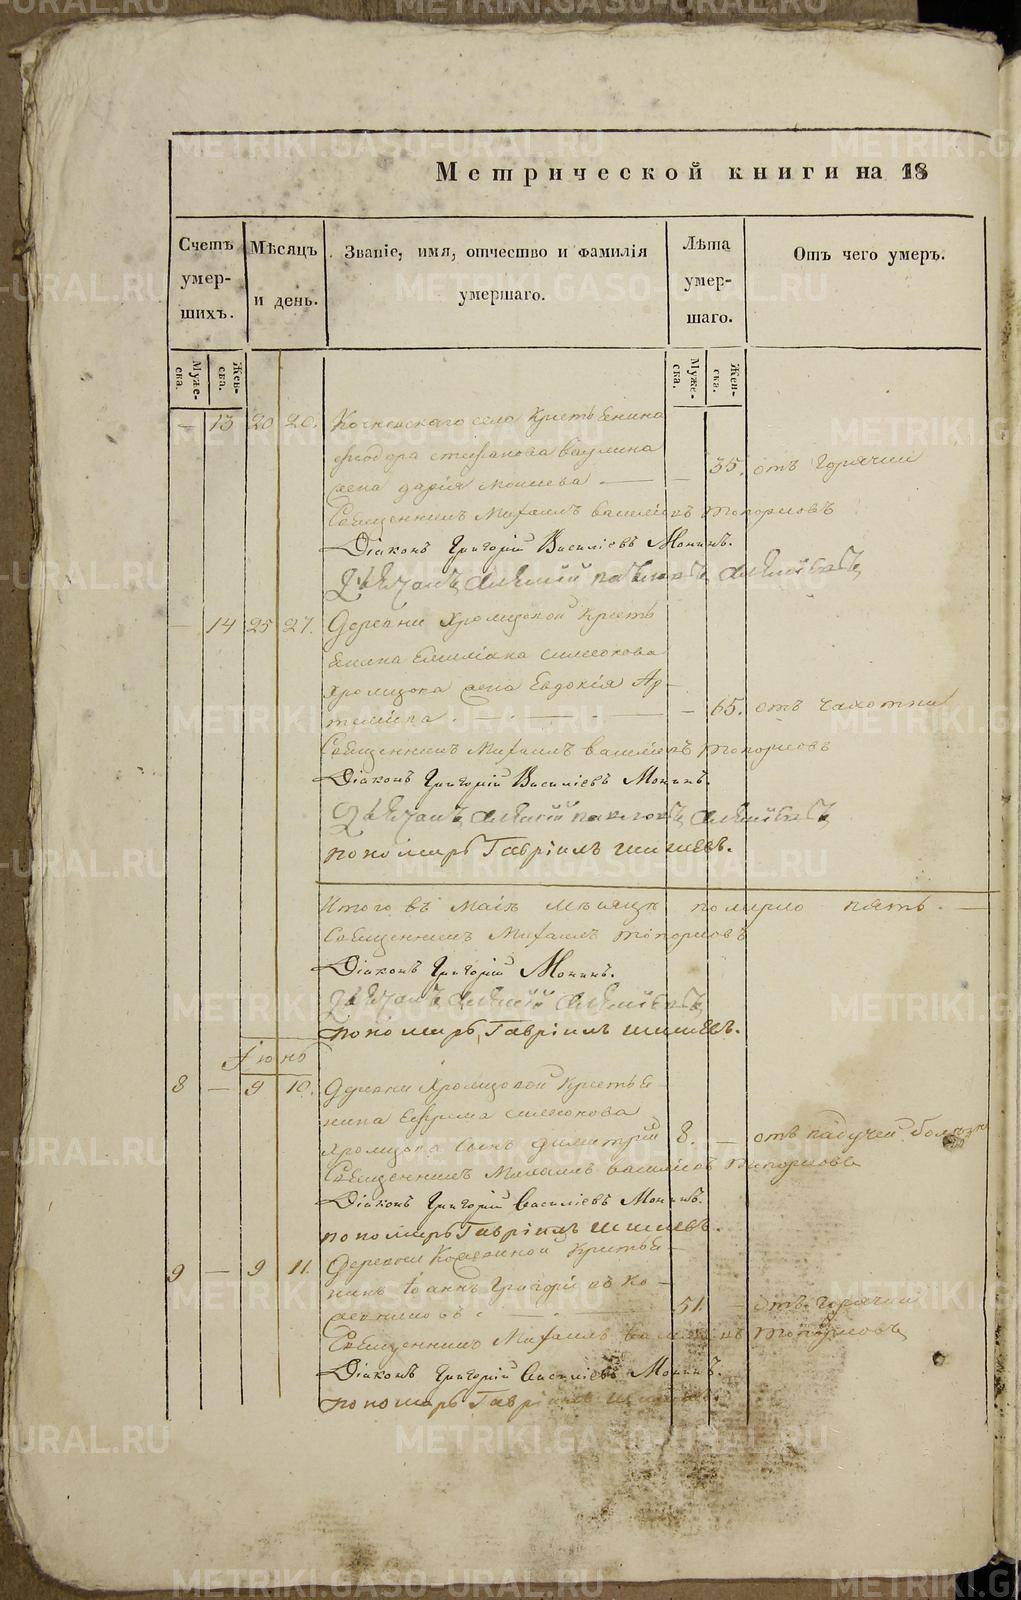 Метрической книги на 18
Счетъ умер- шихъ.
Мѣсяцъ и день.
Званіе, имя, отчество и фамилія умершаго.
Лѣта умер- шаго.
Отъ чего умеръ.
Муже- ска.
Жен- ска.
Муже- ска.
Жен- ска.
— 13 20 20. села Крестьянина
Стефанова Ваулина
жена Дарія — — 35. отъ горячки
Священникъ Михаилъ Васильевъ Топорковъ
Діаконъ Григорій Василіевъ Монинъ.
Алексѣй Алексѣевъ
— 14 25 27. Деревни Хромцовой Кресть
янина Емиліана Симеонова
Хромцова жена Евдокія Ар-
темьева. — — 65. отъ чахотки
Священникъ Михаилъ Васильевъ Топорковъ
Діаконъ Григорій Василіевъ Монинъ.
Алексѣй Алексѣевъ
пономарь Гавріилъ Шишевъ.
Итого въ Маіѣ мѣсяцѣ померло пять. —
Священникъ Михаилъ Топорковъ
Діаконъ Григорій Монинъ.
Алексѣй Алексѣевъ
пономарь Гавріилъ Шишевъ.
Іюнь
8 — 9 10. Деревни Хромцовой Крестья-
нина Ефрема Симеонова
Хромцова сынъ Димитрій 8. — отъ падучей болѣзни
Священникъ Михаилъ Васильевъ Топорковъ
Діаконъ Григорій Василіевъ Монинъ.
пономарь Гавріилъ Шишевъ.
9 — 9 11. Деревни Кожевиной Крестья-
нинъ Іоаннъ Григорьевъ Ко-
жевниковъ. — 51. — отъ горячки
Священникъ Михаилъ Васильевъ Топорковъ
Діаконъ Григорій Василіевъ Монинъ.
пономарь Гавріилъ Шишевъ.
METRIKI.GASO-URAL.RU